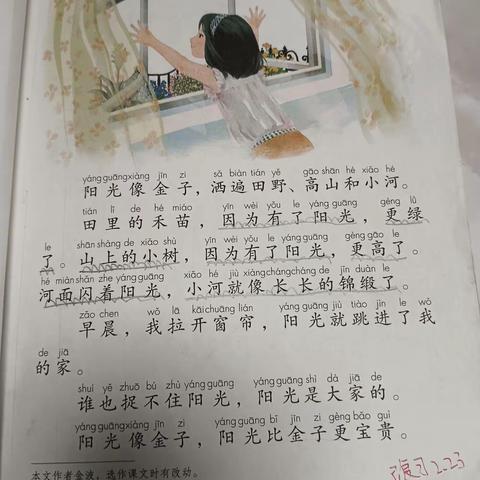 yángguāngxiàng jīn zi sǎ biàn tián yě gāo shān hé xiǎo hé
阳光像金子，洒遍田野、高山和小河。
tián lǐ de hé miáo yīn wèi yǒu le yáng guāng gèng lǜ
田里的禾苗，因为有了阳光，更绿
le shān shàng de xiǎo shù yīn wèi yǒu le yáng guāng gèng gāo le
了。山上的小树，因为有了阳光，更高了。
hé miàn shǎn zhe yáng guāng xiǎo hé jiù xiàng cháng cháng de jǐn duàn le
河面闪着阳光，小河就像长长的锦缎了。
zǎo chen wǒ lā kāi chuāng lián yáng guāng jiù tiào jìn le wǒ
早晨，我拉开窗帘，阳光就跳进了我
de jiā
的家。
shuí yě zhuō bú zhù yáng guāng yáng guāng shì dà jiā de
谁也捉不住阳光，阳光是大家的。
yángguāngxiàng jīn zi yáng guāng bǐ jīn zi gèng bǎo guì
阳光像金子，阳光比金子更宝贵。
本文作者金波，选作课文时有改动。
复习2.23